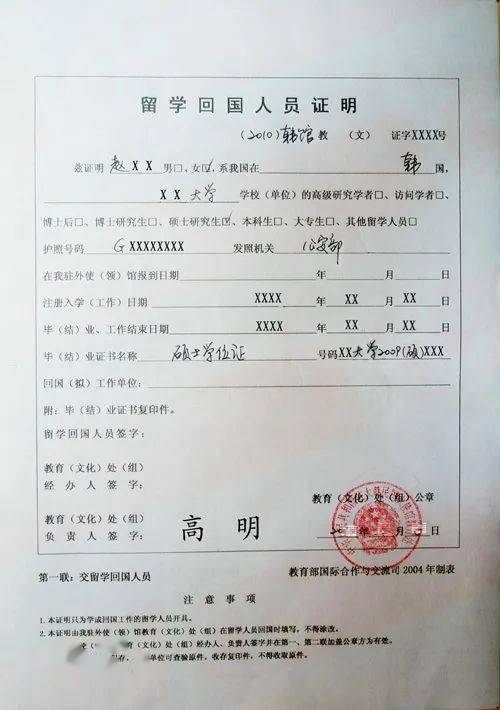 留学回国人员证明
(2010)韩馆教 (文) 证字XXXX号
兹证明 赵XX 男□、女☑,系我国在 韩 国,
XX大学 学校(单位)的高级研究学者□、访问学者□、
博士后□、博士研究生□、硕士研究生☑、本科生□、大专生□、其他留学人员□
护照号码 G XXXXXXXX 发照机关 公安部
在我驻外使(领)馆报到日期 年 月 日
注册入学(工作)日期 XXXX 年 XX 月 XX 日
毕(结)业、工作结束日期 XXXX 年 XX 月 XX 日
毕(结)业证书名称 硕士学位证 号码XX大学2009(硕)XXX
回国(拟)工作单位:
附:毕(结)业证书复印件。
留学回国人员签字:
教育(文化)处(组)
经办人签字:
教育(文化)处(组)公章
教育(文化)处(组)
负责人签字: 高明
年 月 日
第一联:交留学回国人员 教育部国际合作与交流司2004年制表
注意事项
1.本证明只为学成回国工作的留学人员开具。
2.本证明由我驻外使(领)馆教育(文化)处(组)在留学人员回国时填写,不得涂改。
教育(文化)处(组)经办人、负责人签字并在第一、第二联加盖公章方为有效。
单位可查验原件,收存复印件,不得收取原件。